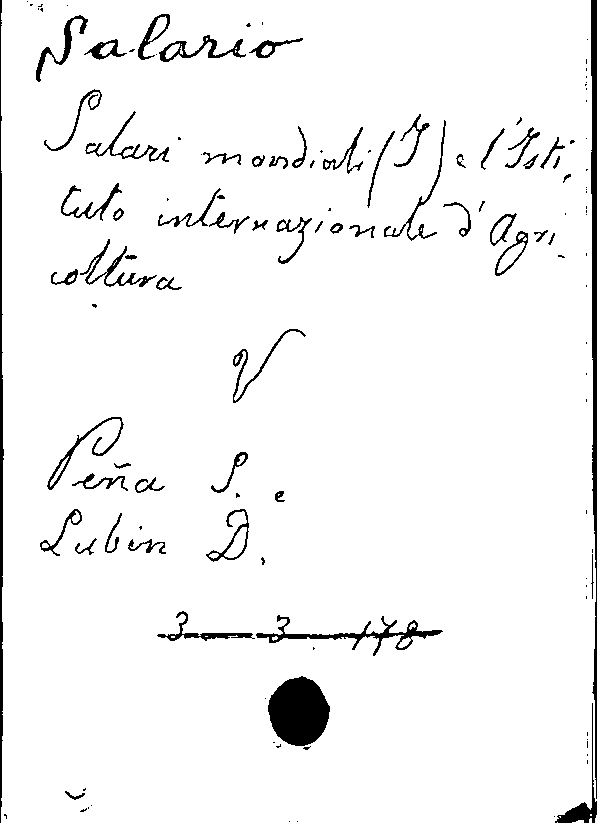 Salario
Salari mondiali (I) e l'Isti,
tuto internazionale d'Agri.
coltura
V
Peña S. e
Lubin D.
3 3 178